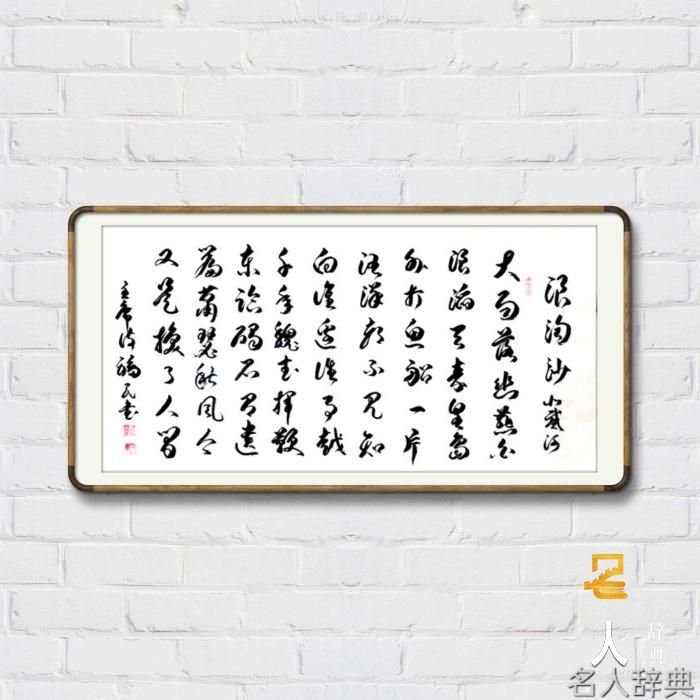 浪淘沙 北戴河
大雨落幽燕白
浪滔天秦皇岛
外打鱼船一片
汪洋都不见知
向谁边往事越
千年魏武挥鞭
东临碣石有遗
篇萧瑟秋风今
又是换了人间
主席诗福民书
人
辞典
名人辞典